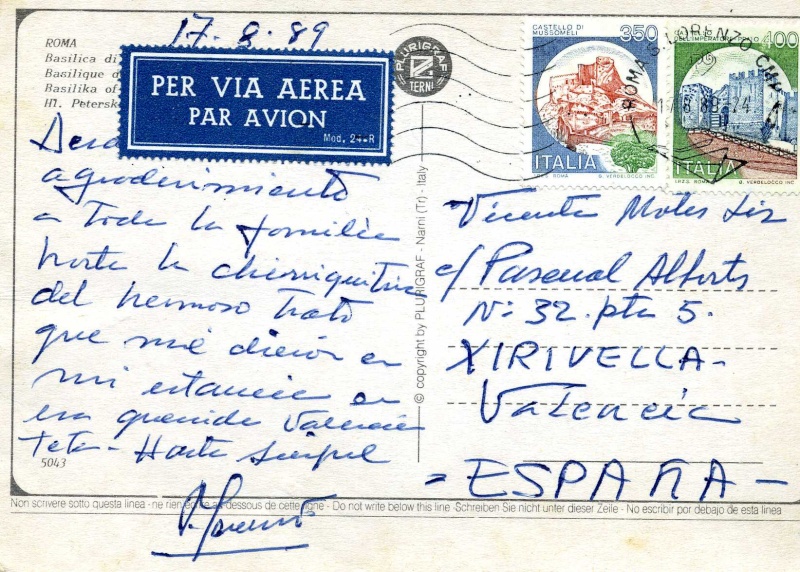 17-8-89
ROMA
Basilica di
Basilique d
Basilika of
Hl. Petersk
PER VIA AEREA
PAR AVION
Mod. 24-R
PLURIGRAF
TERNI
CASTELLO DI
MUSSOMELI
350
ITALIA
I.P.Z.S. ROMA
G. VERDELOCCO INC.
CASTELLO
DELL'IMPERATORE-PRATO
400
ITALIA
I.P.Z.S. ROMA
G. VERDELOCCO INC.
ROMA S. LORENZO
agradecimiento
a toda la familia
hasta la chierriquitina
del hermoso trato
que me dieron en
mi estancia en
esa querida Valencia
Hasta siempre
5043
© copyright by PLURIGRAF - Narni (Tr) - Italy
Vicente Moles
c/ Pascual Alberts
Nº 32. pta 5.
XIRIVELLA-
Valencia
-ESPAÑA-
Non scrivere sotto questa linea - ne rien écrire au-dessous de cette ligne - Do not write below this line - Schreiben Sie nicht unter dieser Zeile - No escribir por debajo de esta linea